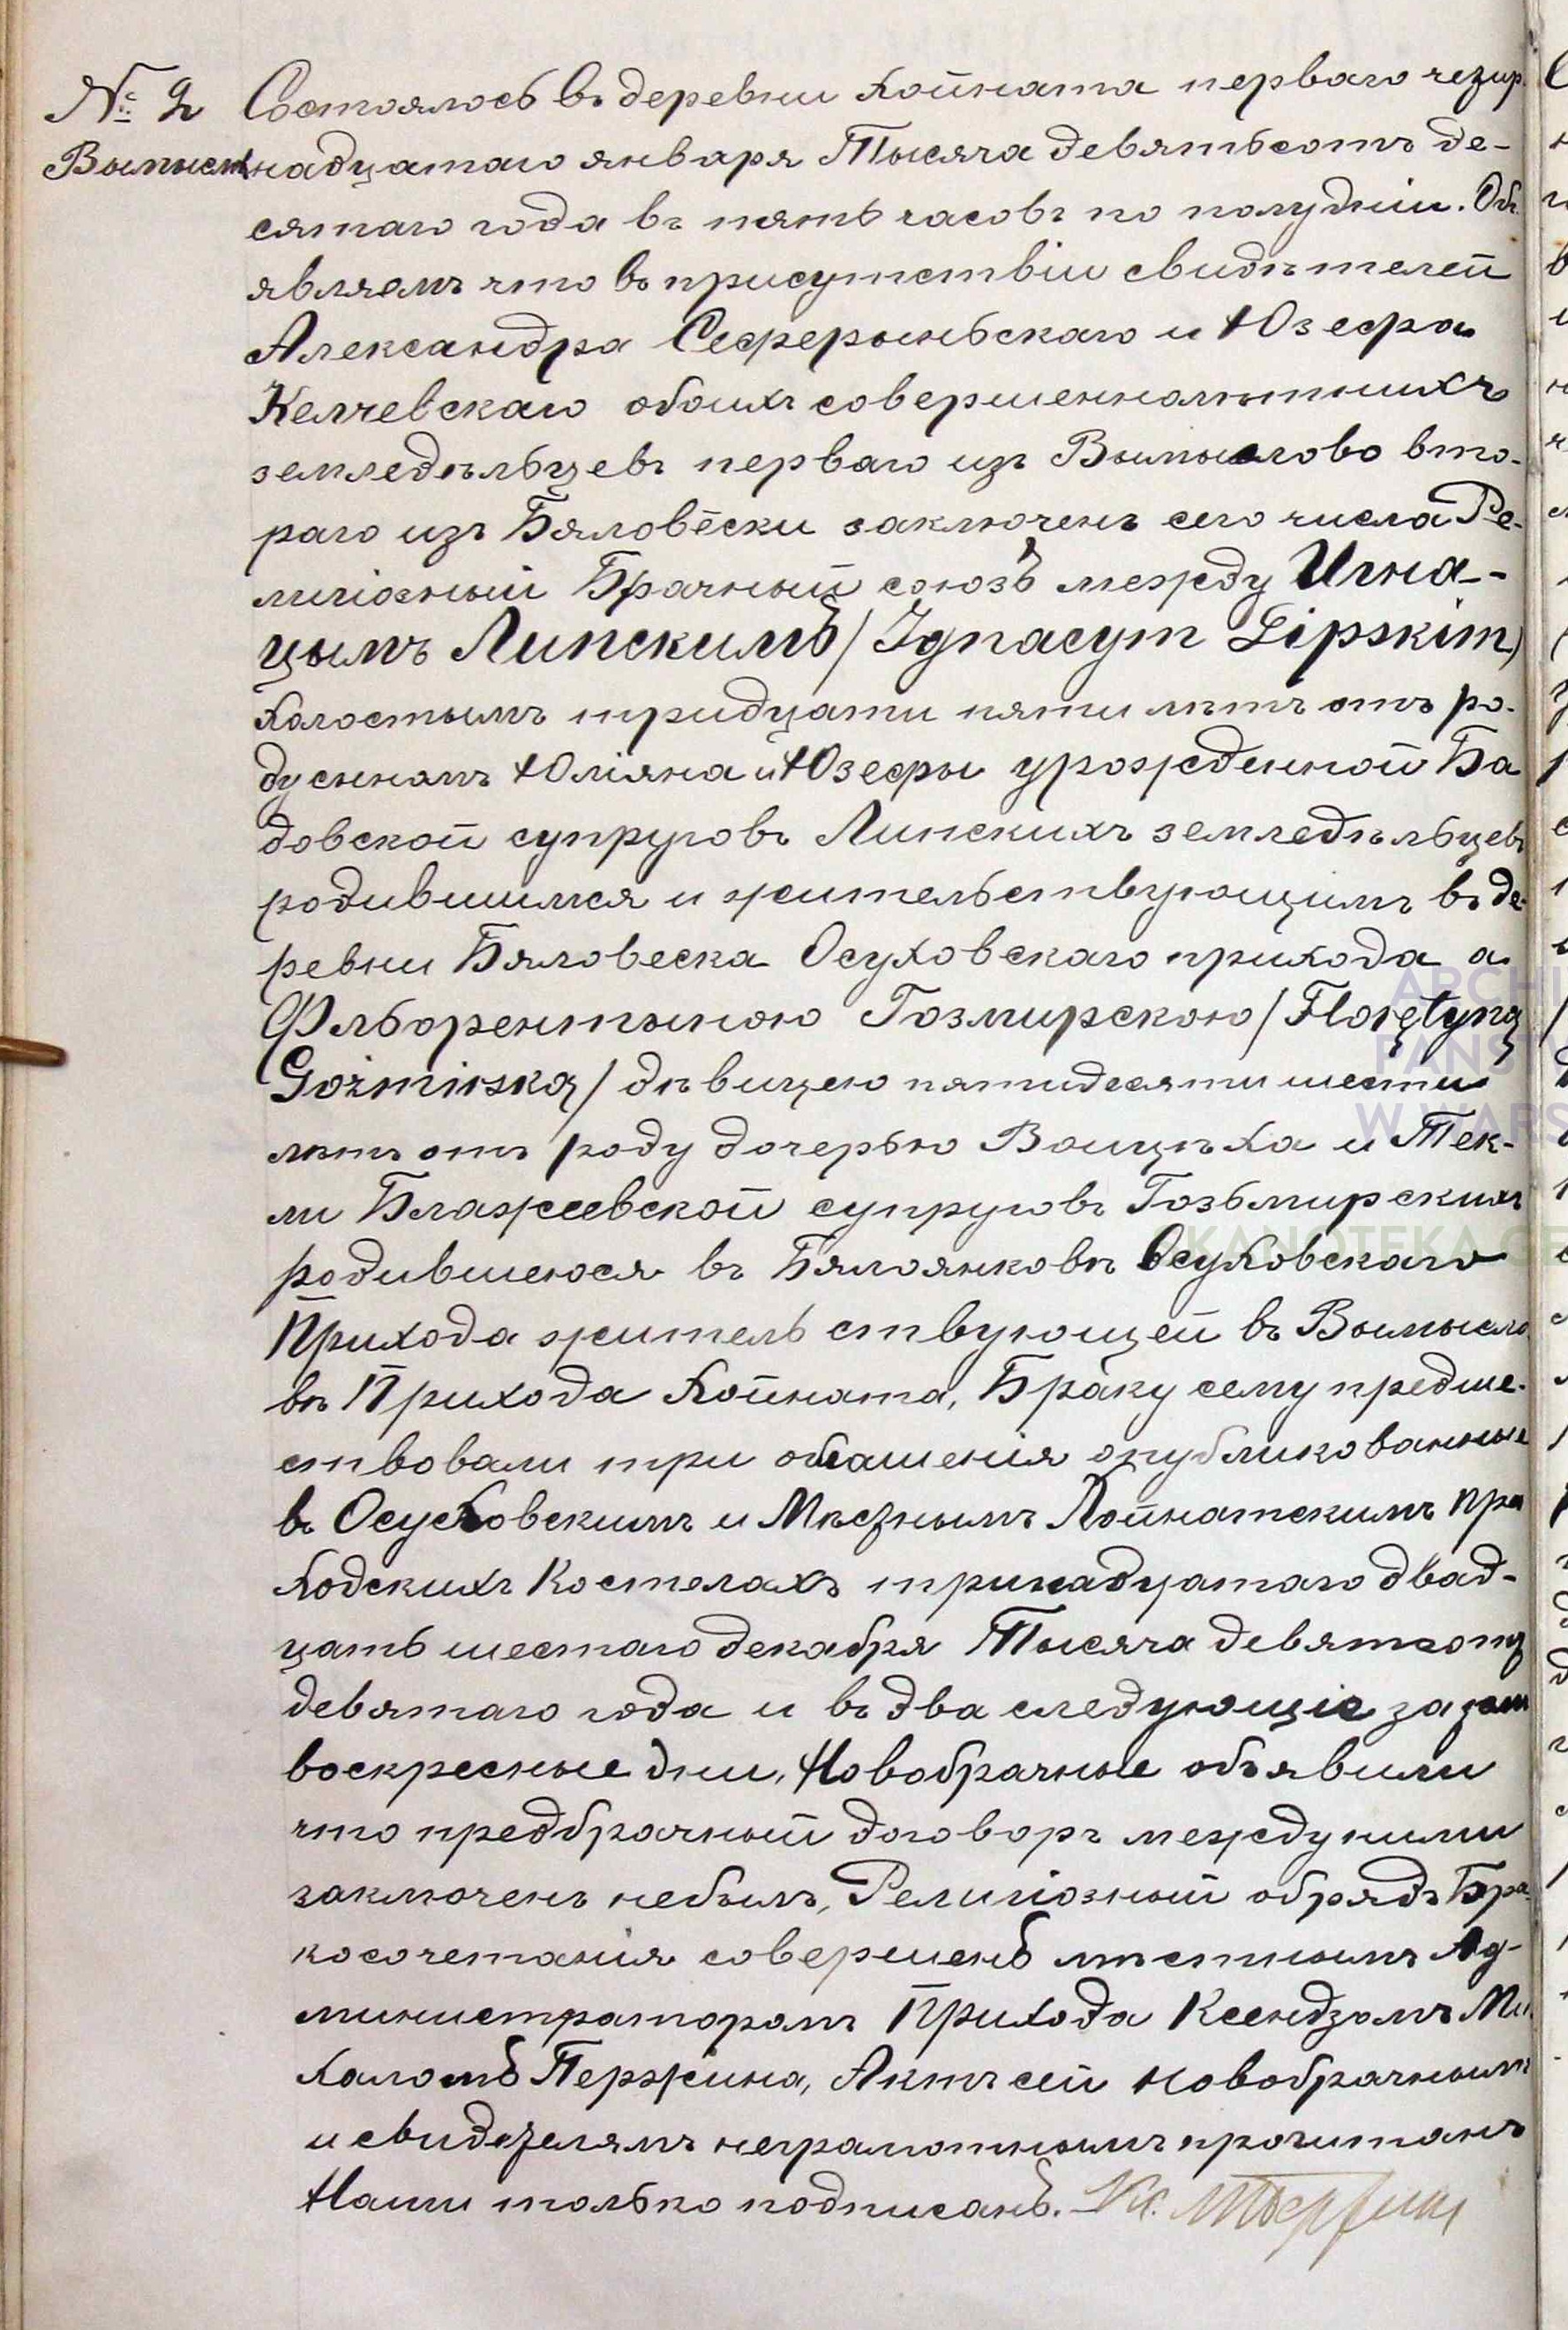 № 2 Состоялось въ деревни Хойната перваго четыр
Вымысл надцатаго января Тысяча девятьсотъ де-
сятаго года въ пять часовъ по полудніи. Объ
являемъ что въ присутствіи свидѣтелей
Александра Сеферыньскаго и Юзефа
Келчевскаго обоихъ совершеннолѣтнихъ
земледѣльцевъ перваго изъ Вымыслово вто-
раго изъ Бяловески заключенъ сего числа Ре-
лигіозный Брачный союзъ между Игна-
цымъ Липскимъ / Ignacym Lipskim)
холостымъ тридцати пяти лѣтъ отъ ро-
ду сыномъ Юліяна и Юзефы урожденной Ба
довской супруговъ Липскихъ земледѣльцевъ
родившимся и жительствующимъ въ де-
ревни Бяловеска Осуховскаго прихода а
Фльорентыною Гозмирскою / Floręntyną
Goźmirską / дѣвицею пятидесяти шести
лѣтъ отъ роду дочерью Войцѣха и Тек-
ли Блажеевской супруговъ Гозьмирскихъ
родившеюся въ Бялоянковѣ Осуховскаго
Прихода жительствующей въ Вымысло
вѣ Прихода Хойната, Браку сему предше-
ствовали три оглашенія опубликованные
въ Осуховскимъ и Мѣстнымъ Хойнатскимъ при
ходскихъ Костелахъ тринадцатаго двад-
цать шестаго декабря Тысяча девятсотъ
девятаго года и въ два следующіе за тѣм
воскресные дни, Новобрачные объявили
что предбрачный договоръ между ними
заключенъ небылъ, Религіозный обрядъ Бра-
косочетанія совершенъ мѣстнымъ Ад-
министраторомъ Прихода Ксендзомъ Ми
халомъ Пержина, Актъ сей новобрачнымъ
и свидетелямъ неграмотнымъ прочитанъ
Нами только подписанъ. Кс. М Пержина
ARCHI
PAŃST
W WARS
SKANOTEKA GE